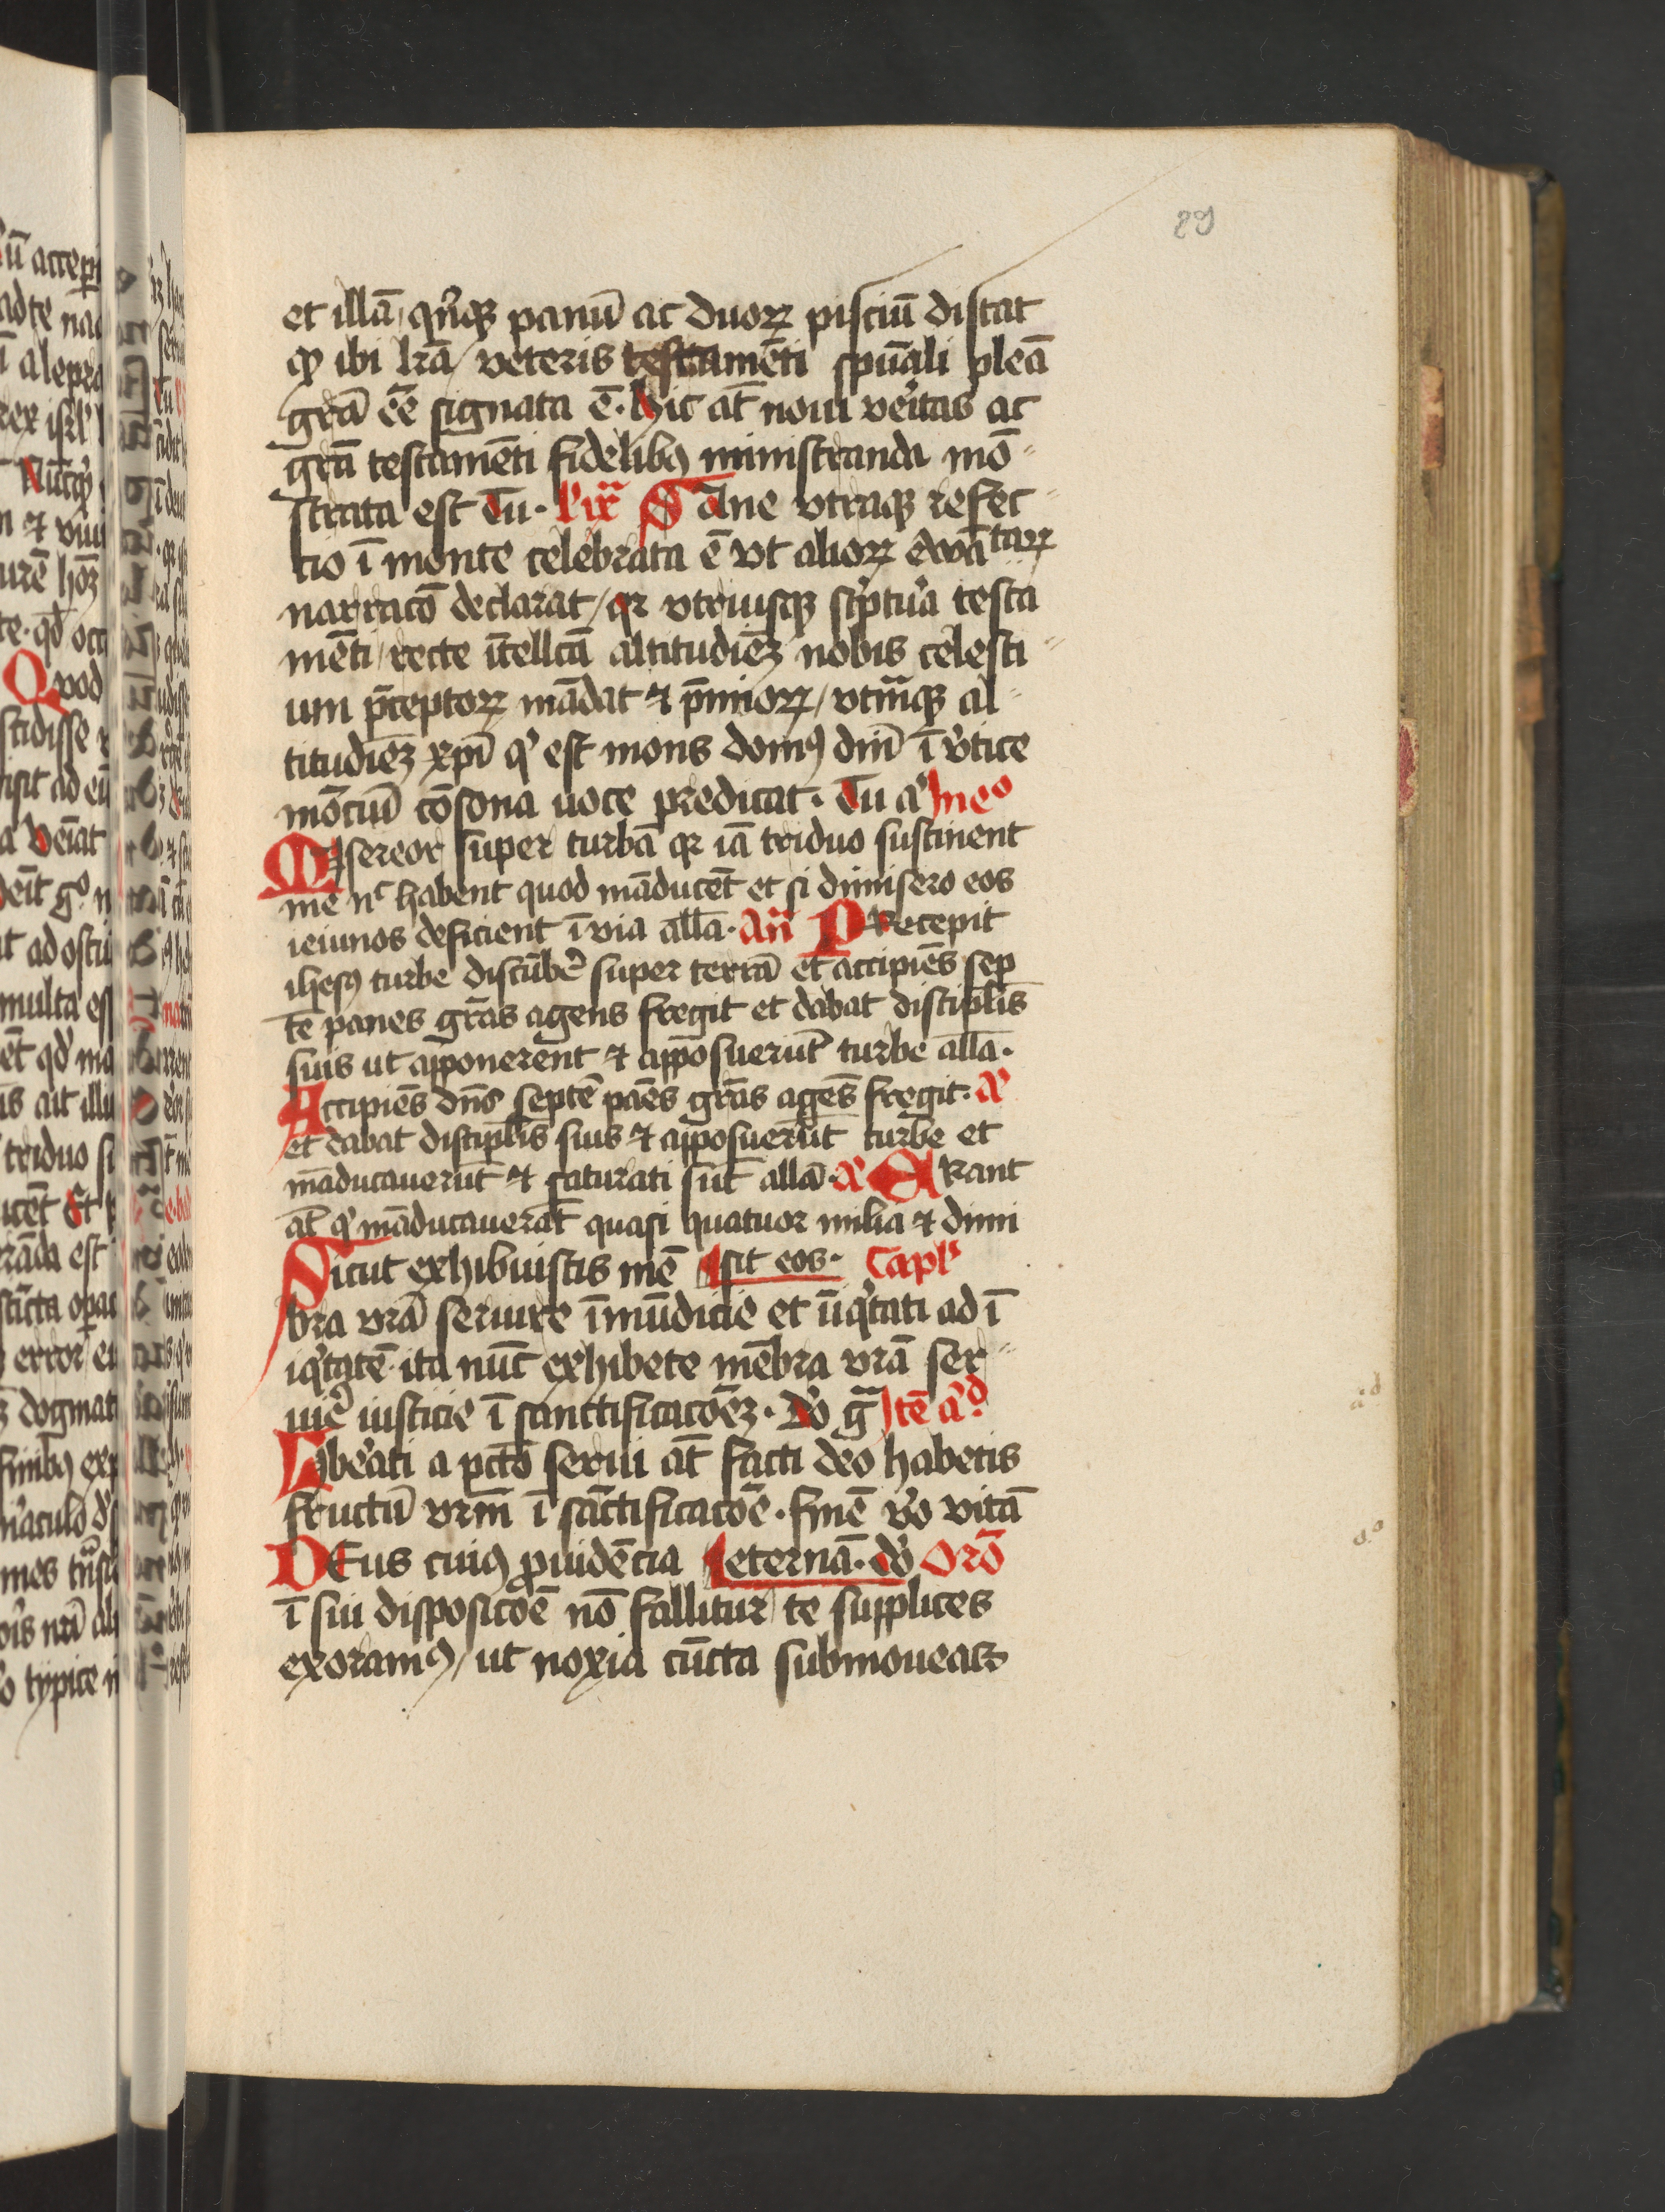 89
et illā / qͥnqꝫ panū ac duoꝝ pisciū distat
qꝫ ibi lrā / veteris testamēti spūali pleā
grā eē signata ē · hic at̄ noui veͥtas ac
grā testamēti fidelibꝰ ministranda mō
strata est Tu · lix̄ SAne vtraqꝫ refec
tio ī monte celebrata ē vt alioꝝ ewātaꝝ
narracō declarat / qꝛ vtriusqꝫ sc͛ptu͛a testa
mēti / recte ītellcā altitudīeꝫ nobis celesti
um p̄ceptoꝝ mādat ⁊ p̄mioꝝ / vt͛mqꝫ al
titudīeꝫ xp̄i qͥ est mons domꝰ dn̄i ī v͛tice
mōtiū cōsona uoce predicat · Tu aͦ meͦ
Misereor super turbā qꝛ iā triduo sustinent
me nͨ habent quod māducēt et si dimisero eos
ieiunos deficient ī via allā · An̄ PRecepit
ihesꝰ turbe discūbe͛ super terrā et accipiēs sep
tē panes grās agens fregit et dabat discipl̄is
suis ut apponerent ⁊ apposuerūt turbe allā ·
Accipiēs dn̄s septē pāes grās agēs fregit · aͦ
et dabat discipl̄is suis ⁊ apposuerūt turbe et
māducauerūt ⁊ saturati sūt allā · aͦ ERant
at̄ qͥ māducauerāt quasi quatuor milia ⁊ dimi
Sicut exhibuistis mē sit eos · Caplͫ
bra vrā seruire īmūdicie et īiqͥtati ad ī
iqͥtatē · ita nūc exhibete mēbra vrā ser
uie͛ iusticie ī sanctificacōeꝫ · dō gͣ Itē aͩ
Libeͣti a pcc̄o serui at̄ facti deo habetis
fructū vrm̄ ī sāctificacōe · finē v͛o vitā
DEus cuiꝰ ꝓuidēcia eternā · dō Orō
ī sui disposicōe nō fallitur te supplices
exoramꝰ / ut noxia cūcta submoueas